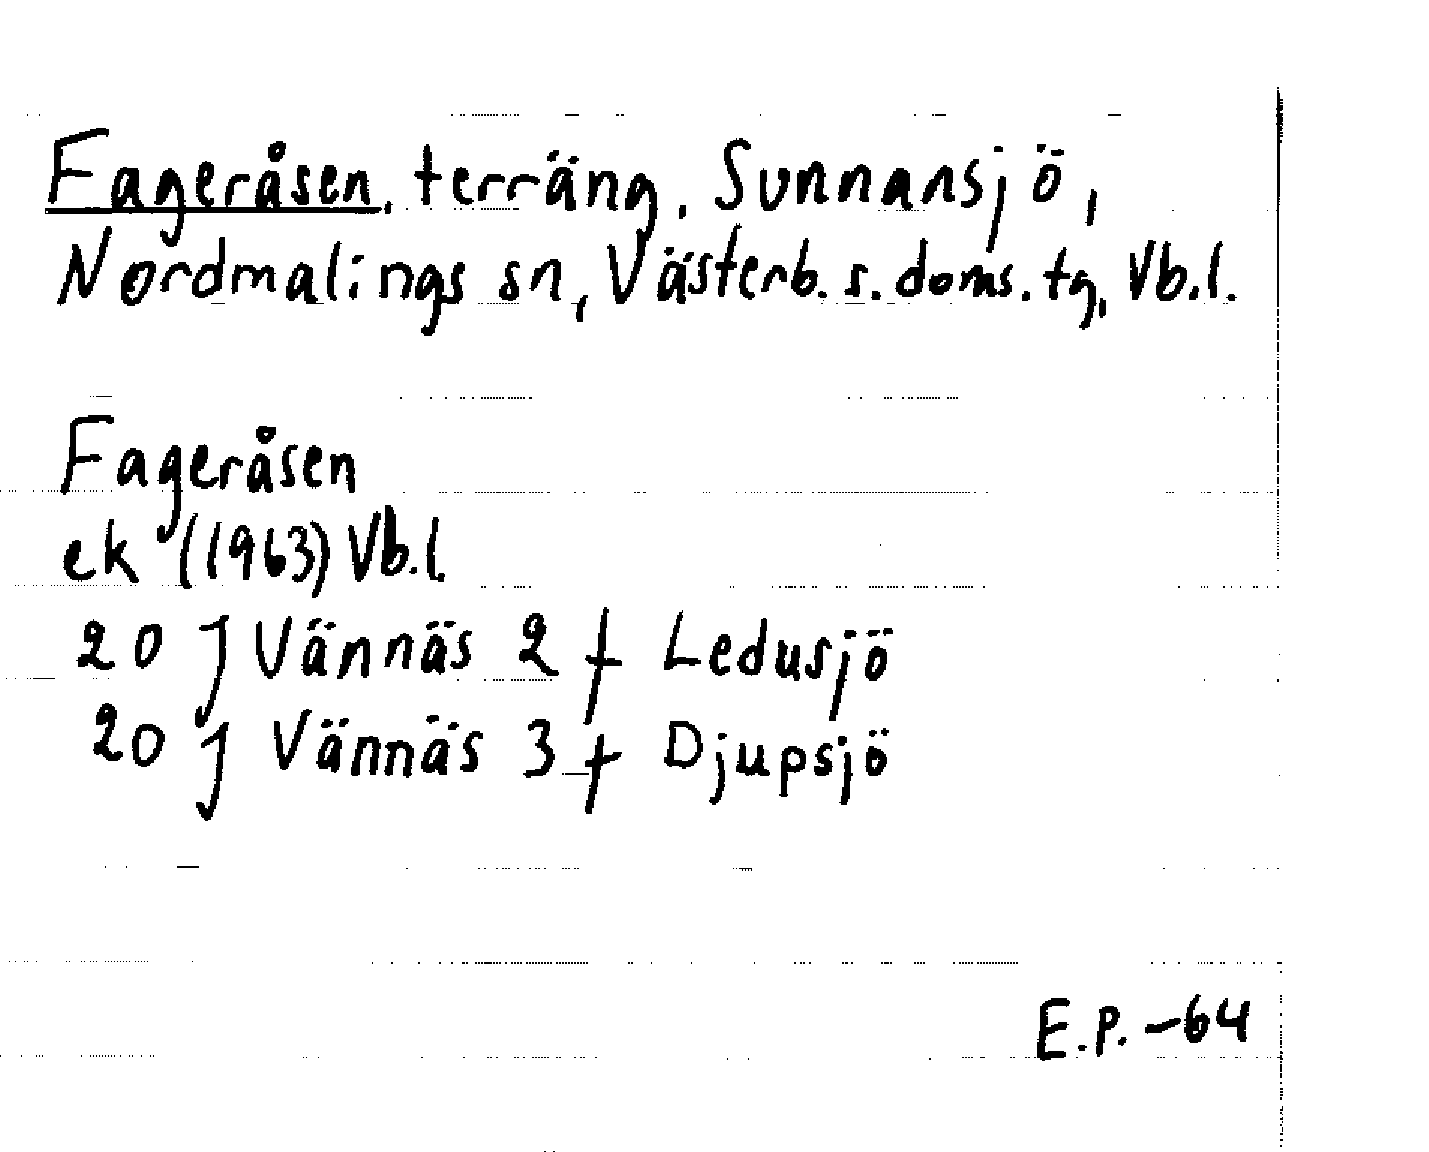 Fageråsen, terräng, Sunnansjö,
Nordmalings sn, Västerb. s. doms. tg, Vb.l.
Fageråsen
ek (1963) Vb.l.
20 J Vännäs 2 f Ledusjö
20 J Vännäs 3 f Djupsjö
E.P. -64